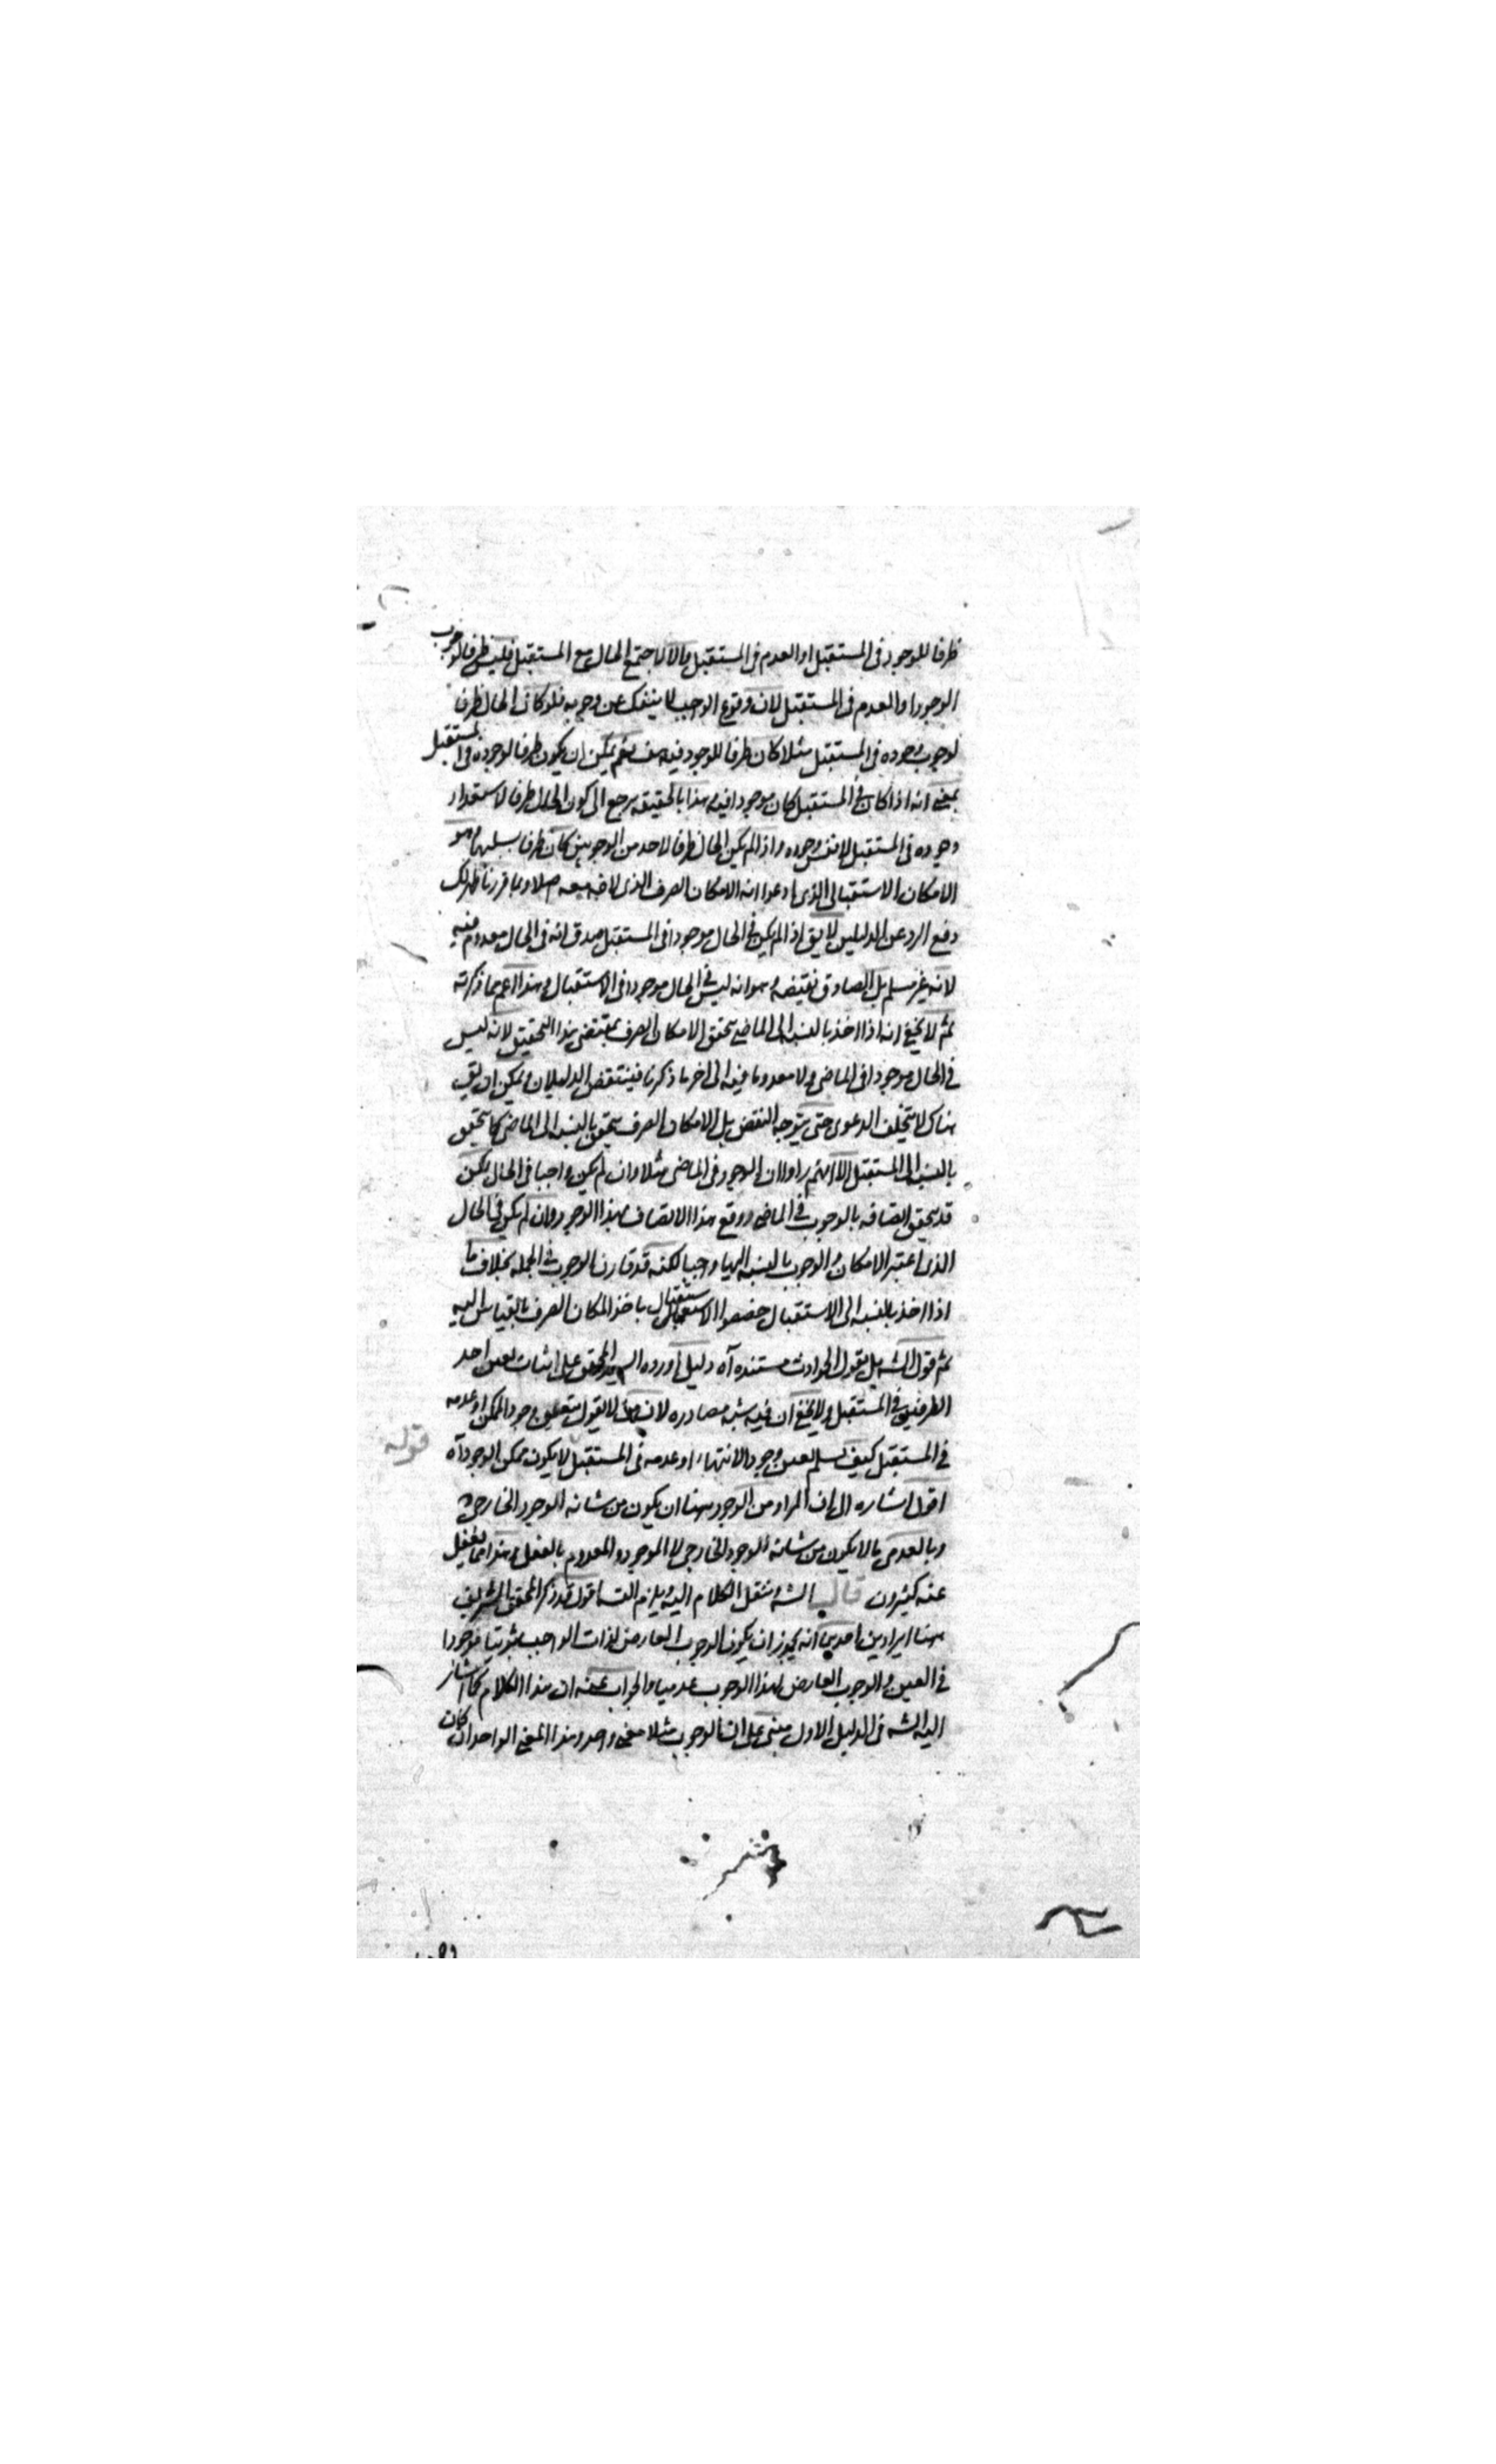 ظرفا للوجود فى المستقبل او العدم فى المستقبل والا لاجتمع الحال مع المستقبل فليس ظرفا لوجوب
الوجود او العدم فى المستقبل لان وقوع الواجب لا ينفك عن وجوبه فلو كان الحال ظرفا
لوجوب وجوده فى المستقبل مثلا كان ظرفا للوجود فيه هف نعم يمكن ان يكون ظرفا لوجوده فى المستقبل
بمعنى انه اذا كان فى المستقبل كان موجودا فيه وهذا بالحقيقه يرجع الى كون الحال ظرفا لاستعداد
وجوده فى المستقبل لا نفس وجوده واذا لم يكن الحال ظرفا لاحد من الوجوبين كان ظرفا لسلبهما وهو
الامكان الاستقبالى الذى ادعوا انه الامكان الصرف الذى لا ضروره معه اصلا وبما قررنا ظهر لك
دفع الرد عن الدليلين لا يق اذا لم يكن فى الحال موجودا فى المستقبل صدق انه فى الحال معدوم فيه
لانه غير مسلم بل الصادق نقيضه وهو انه ليس فى الحال موجودا فى الاستقبال وهذا اعم مما ذكرته
ثم لا يخفى انه اذا اخذ بالنسبه الى الماضى تحقق الامكان الصرف بمقتضى هذا التحقيق لانه ليس
فى الحال موجودا فى الماضى ولا معدوما فيه الى اخر ما ذكرنا فينتقض الدليلان ويمكن ان يق
هناك لا تتخلف الدعوى حتى يتوجه النقض بل الامكان الصرف يتحقق بالنسبه الى الماضى كما يتحقق
بالنسبه الى المستقبل الا انهم راوا ان الوجود فى الماضى مثلا وان لم يكن واجبا فى الحال لكن
قد تحقق اتصافه بالوجوب فى الماضى ووقع هذا الاتصاف بهذا الوجود وان لم يكن فى الحال
الذى اعتبر الامكان والوجوب بالنسبه اليها واجبا لكنه قد قارن الوجوب فى الجمله بخلاف ما
اذا اخذ بالنسبه الى الاستقبال خصصوا الاستقبال باخذ الامكان الصرف بالقياس اليه
ثم قول الشه بل نقول الحوادث مستنده آه دليل اورده السيد المحقق على اثبات تعين احد
الطرفين فى المستقبل ولا يخفى ان فيه شبه مصادره لان من لا يقول بتعين وجود الممكن او عدمه
فى المستقبل كيف يسلم تعين وجود الانتهاء او عدمه فى المستقبل لا يكون ممكن الوجود آه
قوله
اقول اشاره الى ان المراد من الوجود ههنا ان يكون من شانه الوجود الخارجى
وبالعدمى ما لا يكون من شانه الوجود الخارجى لا الموجود والمعدوم بالفعل وهذا مما يغفل
عنه كثيرون قال الشه وننقل الكلام اليه ويلزم التسلسل اقول قد ذكر المحقق الشريف
ههنا ايرادين احديهما انه يجوز ان يكون الوجوب العارض لذات الواجب ثبوتيا موجودا
فى العين والوجوب العارض لهذا الوجوب عدميا والجواب عنه ان هذا الكلام كما اشار
اليه الشه فى الدليل الاول مبنى على ان الوجوب مثلا معنى واحد وهذا المعنى الواحد ان كان